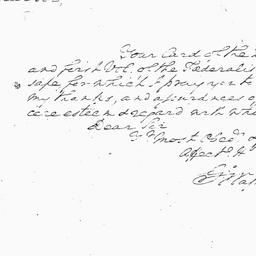 Your Card of the
and first Vol. of the Federali
safe for which I pray you to
my thanks, and assurances o
cere esteem & regard with whi
Dear Sir
Yr most Obed.
Affect. H
Go: Wash